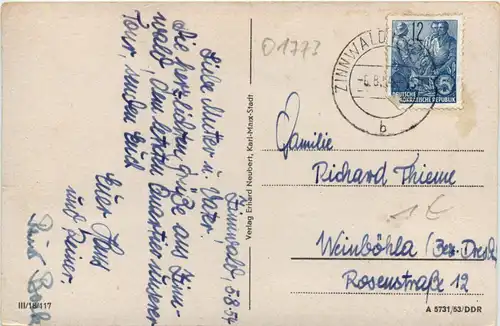 Zinnwald, 5.8.54
Liebe Mutter u. Vater.
Die herzlichsten Grüße aus Zinn-
wald, dem letzten Quartier unserer
Tour, senden Euch
Eure Hans
und Reiner.
Verlag Erhard Neubert, Karl-Marx-Stadt
III/18/117
D 1773
ZINNWALD
b
12
DEUTSCHE
DEMOKRATISCHE REPUBLIK
Familie
Richard Thieme
1 €
Weinböhla / Bez. Dresd.
Rosenstraße 12
A 5731/53/DDR